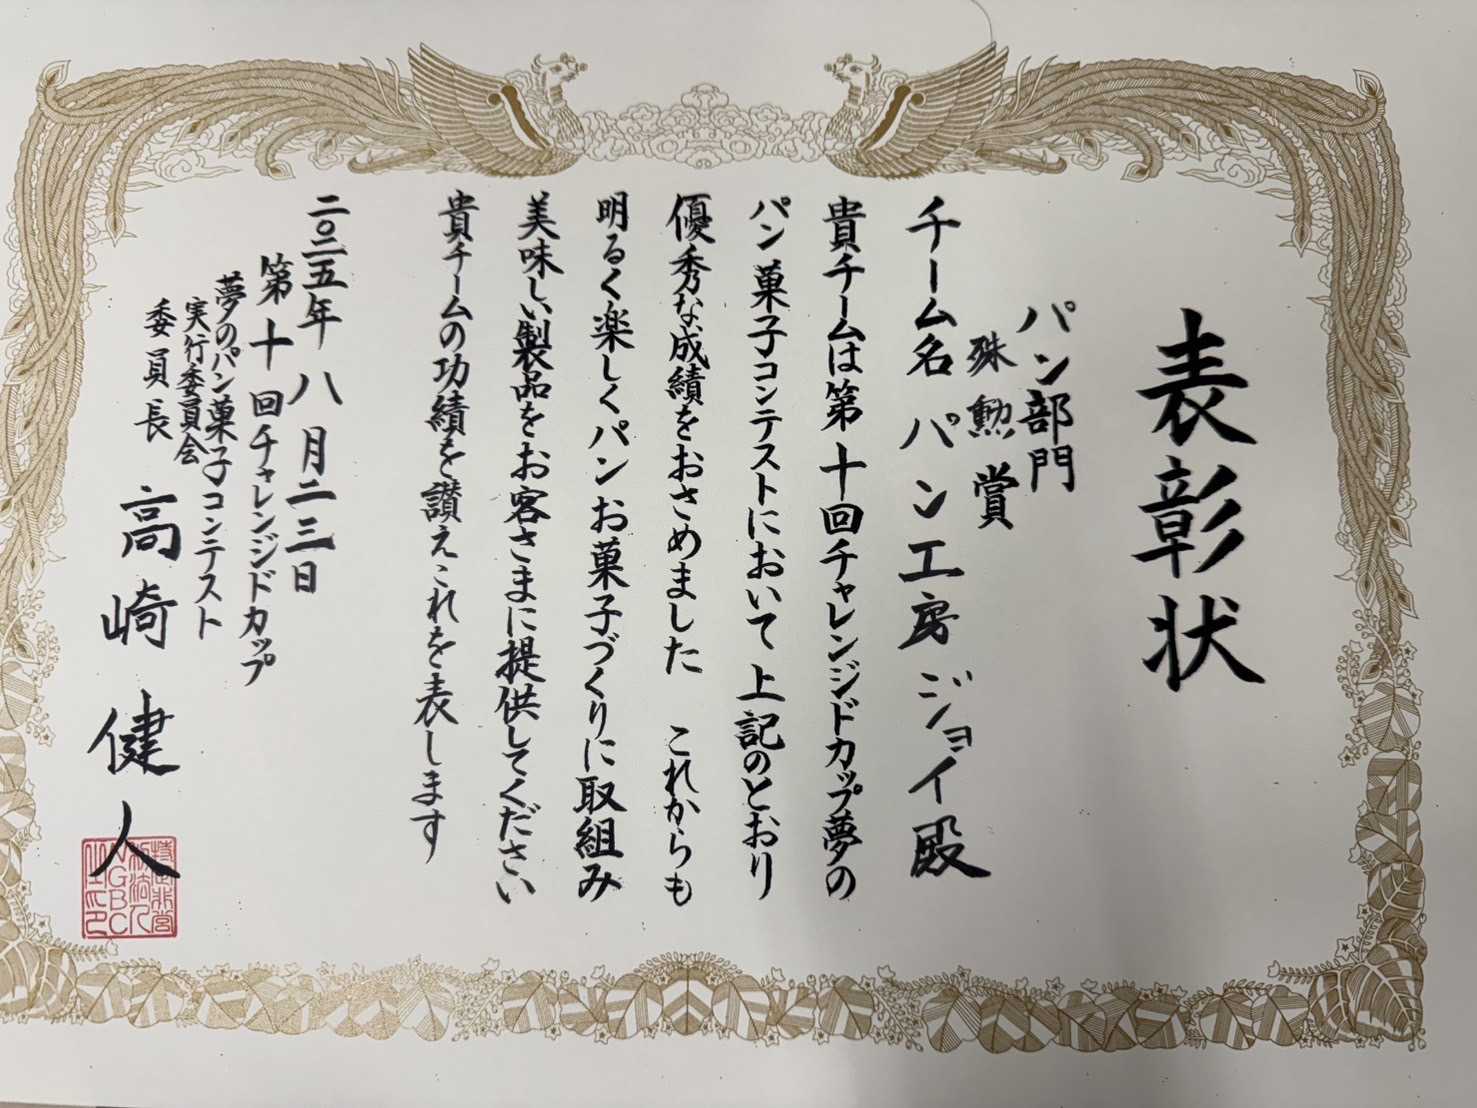 表彰状
パン部門
殊勲賞
チーム名 パン工房ジョイ殿
貴チームは第十回チャレンジドカップ夢の
パン菓子コンテストにおいて上記のとおり
優秀な成績をおさめました これからも
明るく楽しくパンお菓子づくりに取組み
美味しい製品をお客さまに提供してください
貴チームの功績を讃えこれを表します
二〇二五年八月二三日
第十回チャレンジドカップ
夢のパン菓子コンテスト
実行委員会
委員長 高崎健人